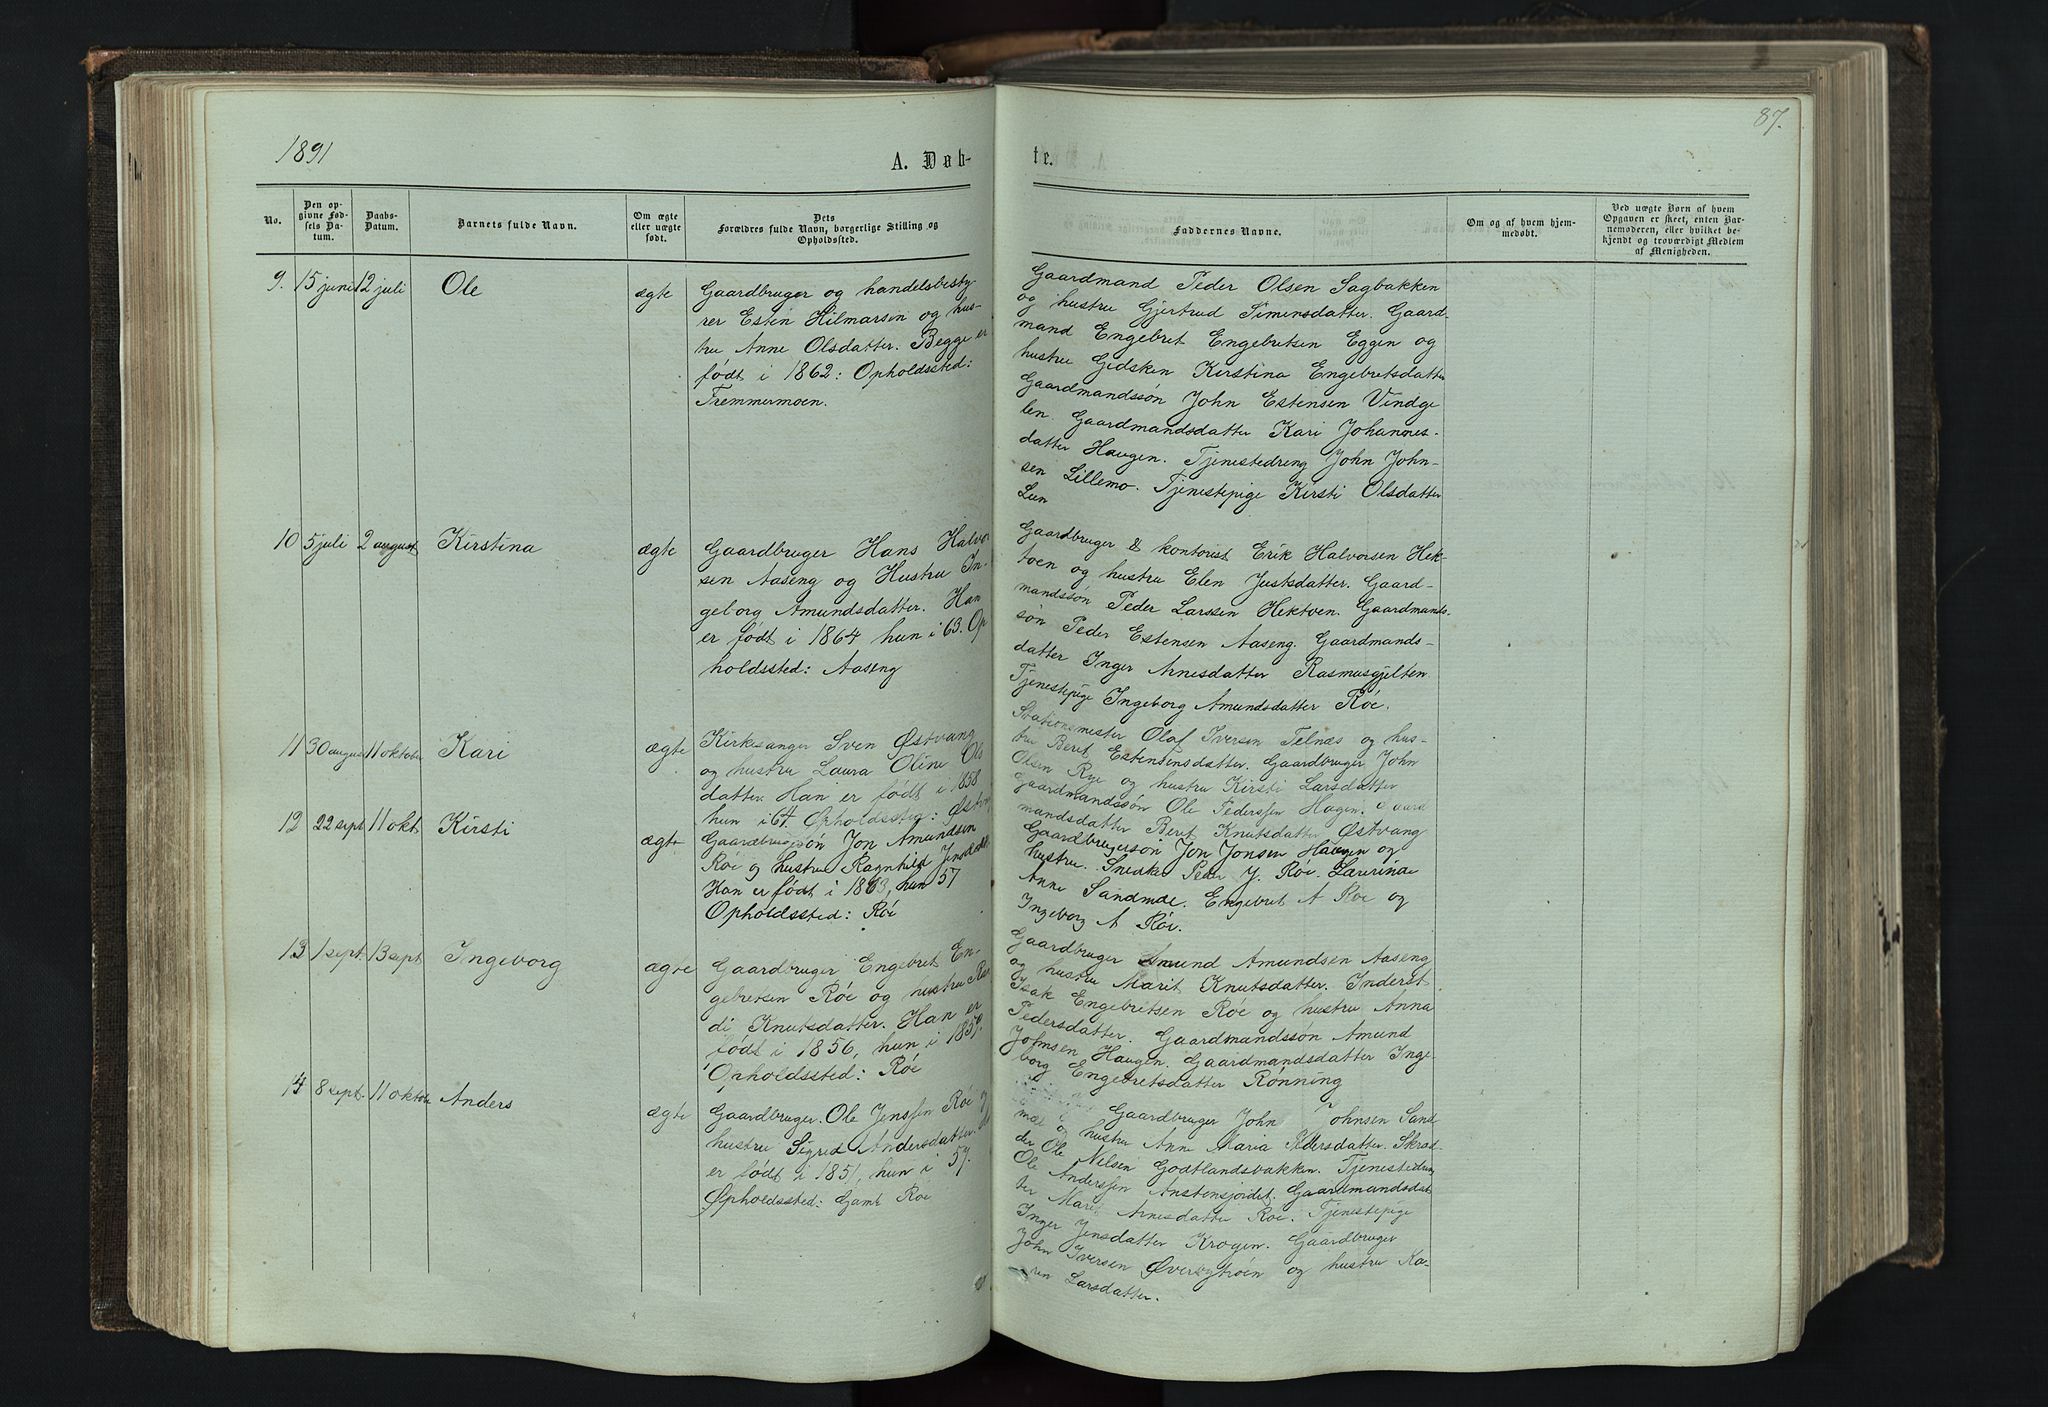 87.
1891
A. Døb-
te.
No.
Den op-
givne Fød-
sels Da-
tum.
Daabs-
Datum.
Barnets fulde Navn.
Om ægte
eller uægte
født.
Dets
Forældres fulde Navn, borgerlige Stilling og
Opholdssted.
Faddernes Navne.
Om og af hvem hjem-
medøbt.
Ved uægte Børn af hvem
Opgaven er skeet, enten Bar-
nemoderen, eller hvilket be-
kjendt og troværdigt Medlem
af Menigheden.
9. 15 juni 12 juli Ole ægte
Gaardbruger og handelsbesty-
rer Esten Hilmarsen og hus-
tru Anne Olsdatter. Begge er
født i 1862: Opholdssted:
Tremmermoen.
Gaardmand Peder Olsen Sagbakken
og hustru Gjertrud Simensdatter. Gaard-
mand Engebret Engebretsen Eggen og
hustru Gidsken Kirstina Engebretsdatter
Gaardmandssøn John Estensen Vindge
len. Gaardmandsdatter Kari Johannes-
datter Haugen. Tjenestedreng John John-
sen Lillemo. Tjenestepige Kirsti Olsdatter
Lun
10 5 juli 2 august Kirstina ægte
Gaardbruger Hans Halvor
sen Aaseng og Hustru In-
geborg Amundsdatter. Han
er født i 1864 hun i 63. Op
holdssted: Aaseng
Gaardbruger & kontorist Erik Halvorsen Hek-
toen og hustru Elen Justsdatter. Gaard-
mandssøn Peder Larssen Hektoen. Gaardmands-
søn Peder Estensen Aaseng. Gaardmands-
datter Inger Arnesdatter Rasmusgjelten
Tjenestepige Ingeborg Amundsdatter Røe.
11 30 august 11 oktober Kari ægte
Kirkesanger Sven Østvang
og hustru Laura Oline Ols
datter. Han er født i 1858
hun i 64 Opholdssted: Østv
Stationsmester Olaf Iversen Telnæs og hus-
tru Beret Estensensdatter. Gaardbruger John
Olsen Rye og hustru Kirsti Larsdatter
Gaardmandssøn Ole Pederssen Hagen. Gaard
mandsdatter Beret Knutsdatter Østvang
12 22 sept 11 okt. Kirsti ægte
Gaardbrugersøn Jon Amundsen
Røe og hustru Ragnhild Jensdatter
Han er født i 1863, hun 57
Opholdssted: Røe
Gaardbrugerson Jon Jonsen Haugen og
hustru. Snedker Peder J. Røe. Lærerinde
Anne Sandmde. Engebret A Roe og
Ingeborg A Røe.
13 1 sept. 13 sept Ingeborg ægte
Gaardbruger Engebret En-
gebretsen Røe og hustru Ran
di Knutsdatter. Han er
født i 1856, hun i 1857.
Opholdssted: Røe
Gaardbruger Amund Amundsen Aaseng
og hustru Marit Knutsdatter. Inderst
Isak Engebritsen Røe og hustru Anna
Pedersdatter. Gaardmandssøn Amund
Johnsen Haugen. Gaardmandsdatter Inge
borg Engebretsdatter Rønning
14 8 sept. 11 oktober Anders ægte
Gaardbruger. Ole Jenssen Røe og
hustru Sigrid Andersdatter.
er født i 1851, hun i 57.
Opholdssted: Gamt Røe
Gaardbruger John Johnsen Sand
mæl og hustru Anne Maria Pedersdatter. Skræd-
der Ole Nilsen Godtlandsbakken. Tjenestedreng
Ole Anderssen Anstensjordet. Gaardmandsdat
ter Marit Arnesdatter Røe. Tjenestepige
Inger Jensdatter Krogen. Gaardbruger
John Iversen Øversytrøen og hustru Ka-
ren Larsdatter.